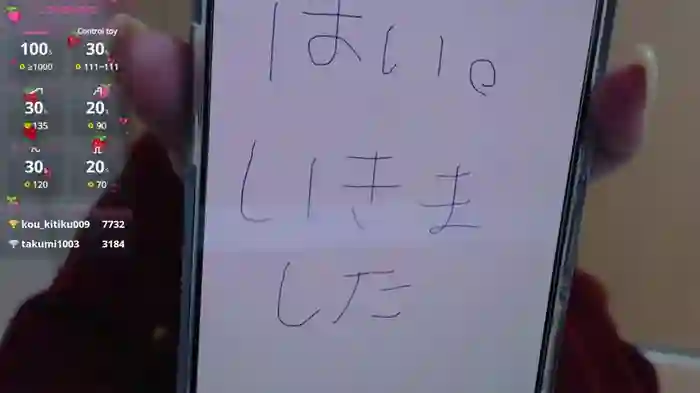 Control toy
100s 30s
≥1000 111-111
30s 20s
135 90
30s 20s
120 70
kou_kitiku009 7732
takumi1003 3184
はい。
いきま
した